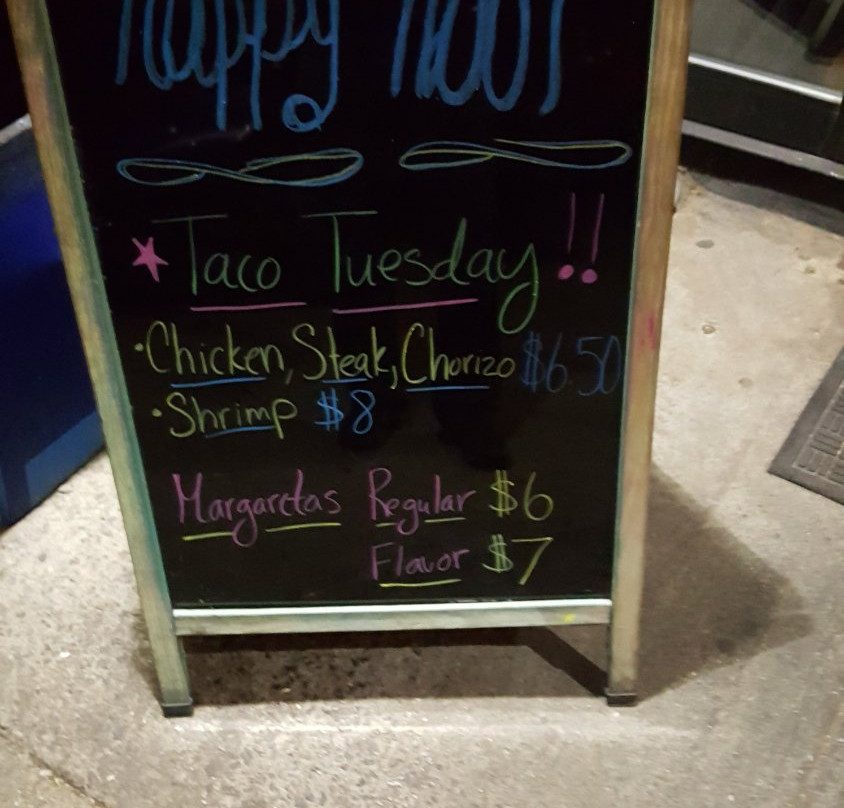 Happy Hour
Taco Tuesday!!
Chicken, Steak, Chorizo $6.50
Shrimp $8
Margaretas Regular $6
Flavor $7